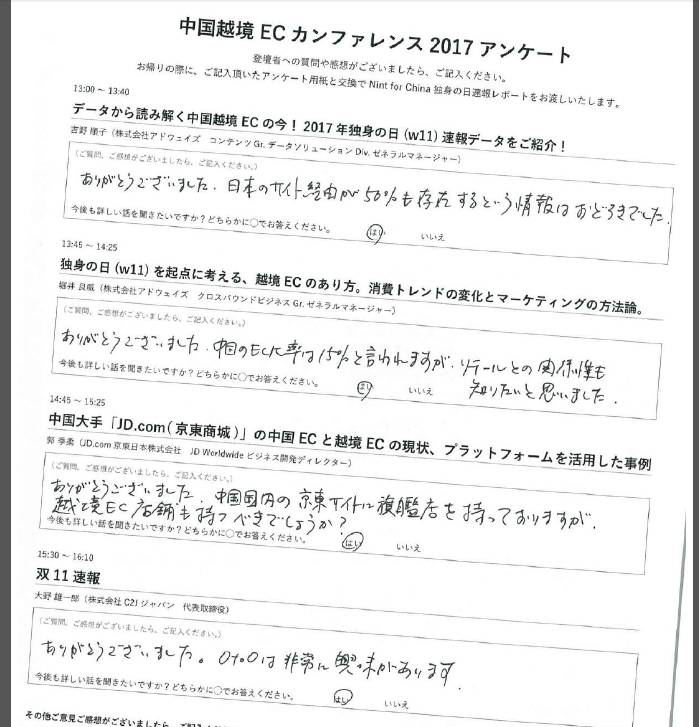 中国越境 EC カンファレンス 2017 アンケート
登壇者への質問や感想がございましたら、ご記入ください。
お帰りの際に、ご記入頂いたアンケート用紙と交換で Nint for China 独身の日速報レポートをお渡しいたします。
13:00 ~ 13:40
データから読み解く中国越境 EC の今！ 2017 年独身の日 (w11) 速報データをご紹介！
吉野 順子（株式会社アドウェイズ コンテンツ Gr. データソリューション Div. ゼネラルマネージャー）
（ご質問、ご感想がございましたら、ご記入ください。）
ありがとうございました。日本のサイト経由が50%も存在するという情報はおどろきでした.
今後も詳しい話を聞きたいですか？どちらかに○でお答えください。 はい いいえ
13:45 ~ 14:25
独身の日 (w11) を起点に考える、越境 EC のあり方。消費トレンドの変化とマーケティングの方法論。
堀井 良威（株式会社アドウェイズ クロスバウンドビジネス Gr. ゼネラルマネージャー）
（ご質問、ご感想がございましたら、ご記入ください。）
ありがとうございました。中国のEC化率は15%と言われますが、リテールとの関係性も
知りたいと思いました.
今後も詳しい話を聞きたいですか？どちらかに○でお答えください。 はい いいえ
14:45 ~ 15:25
中国大手「JD.com（京東商城）」の中国 EC と越境 EC の現状、プラットフォームを活用した事例
郭 季柔（JD.com 京東日本株式会社 JD Worldwide ビジネス開発ディレクター）
（ご質問、ご感想がございましたら、ご記入ください。）
ありがとうございました。中国国内の京東サイトに旗艦店を持っておりますが、
越境EC店舗も持つべきでしょうか？
今後も詳しい話を聞きたいですか？どちらかに○でお答えください。 はい いいえ
15:30 ~ 16:10
双 11 速報
大野 雄一郎（株式会社 C2J ジャパン 代表取締役）
（ご質問、ご感想がございましたら、ご記入ください。）
ありがとうございました。OtoOは非常に興味があります.
今後も詳しい話を聞きたいですか？どちらかに○でお答えください。 はい いいえ
その他ご意見ご感想がございましたら、ご記入